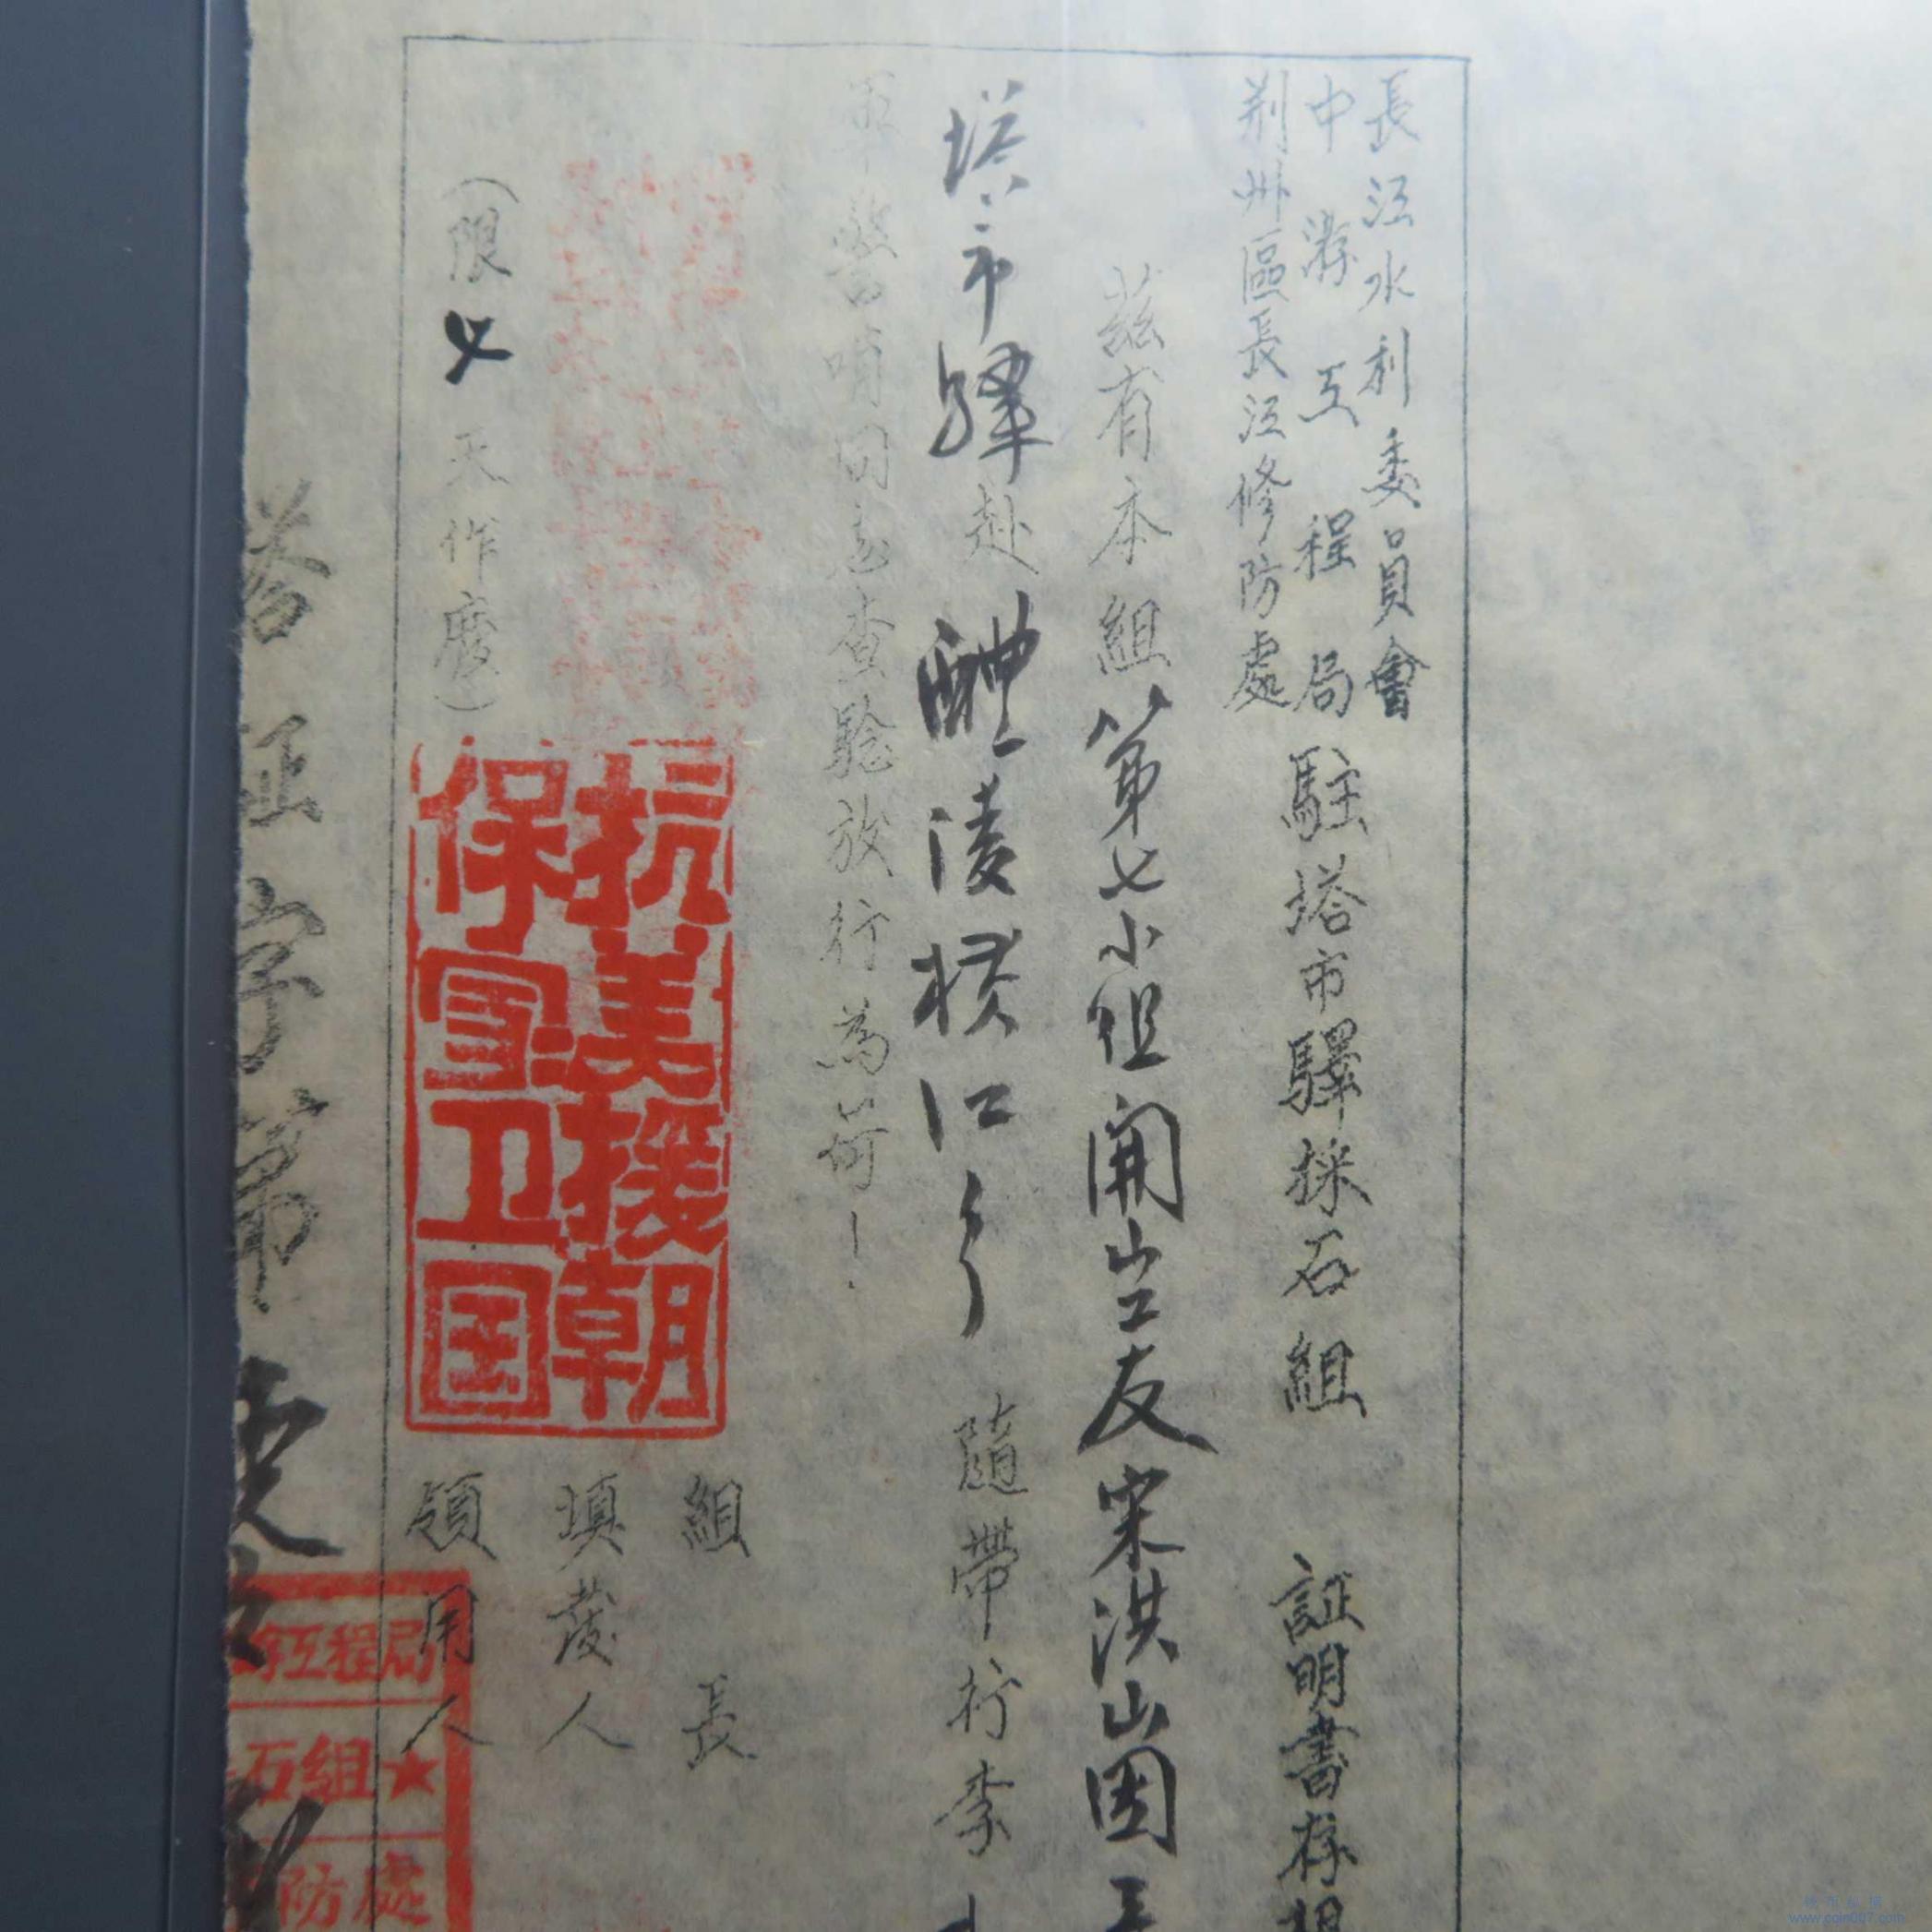 長江水利委員會
中游工程局
荆州區長江修防處
駐塔市驛採石組 証明書存根
茲有本組第七小組開山工友宋洪山因工
塔市驛赴醴陵横江 隨帶行李
軍警哨同志查驗放行為荷！
組長
填發人
領用人
抗美援朝
保家卫国
（限 七 天作廢）
塔証字第
工程局
石組★
防處
www.coin007.com